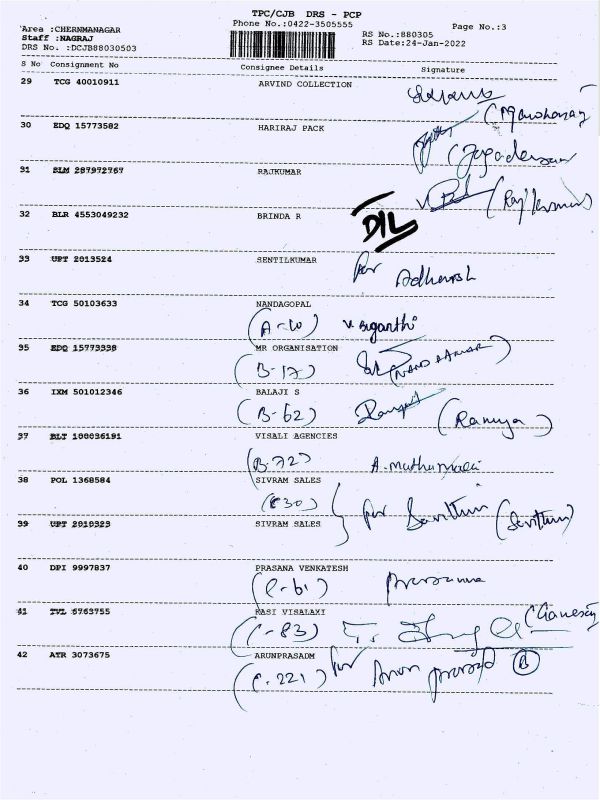 TPC/CJB DRS - PCP
Area :CHERNMANAGAR Phone No.:0422-3505555 Page No.:3
Staff :NAGRAJ RS No.:880305
DRS No. :DCJB88030503 RS Date:24-Jan-2022
S No Consignment No Consignee Details Signature
29 TCG 40010911 ARVIND COLLECTION
(Manoharan)
30 EDQ 15773582 HARIRAJ PACK
31 SLM 287972767 RAJKUMAR
32 BLR 4553049232 BRINDA R
DIL
33 UPT 2013524 SENTILKUMAR
for Adharsh
34 TCG 50103633 NANDAGOPAL
(A-10)
35 EDQ 15773338 MR ORGANISATION
(B-17) (NANDAKUMAR)
36 IXM 501012346 BALAJI S
(B-62) (Ramya)
37 BLT 100036191 VISALI AGENCIES
(B-72)
38 POL 1368584 SIVRAM SALES
(C30) for
39 UPT 2019323 SIVRAM SALES
40 DPI 9997837 PRASANA VENKATESH
(C-61) prasanna
41 TVL 6763755 KASI VISALAXI
(C-83) (Ganesan)
42 ATR 3073675 ARUNPRASADM
(C-221) for Arun prasad B